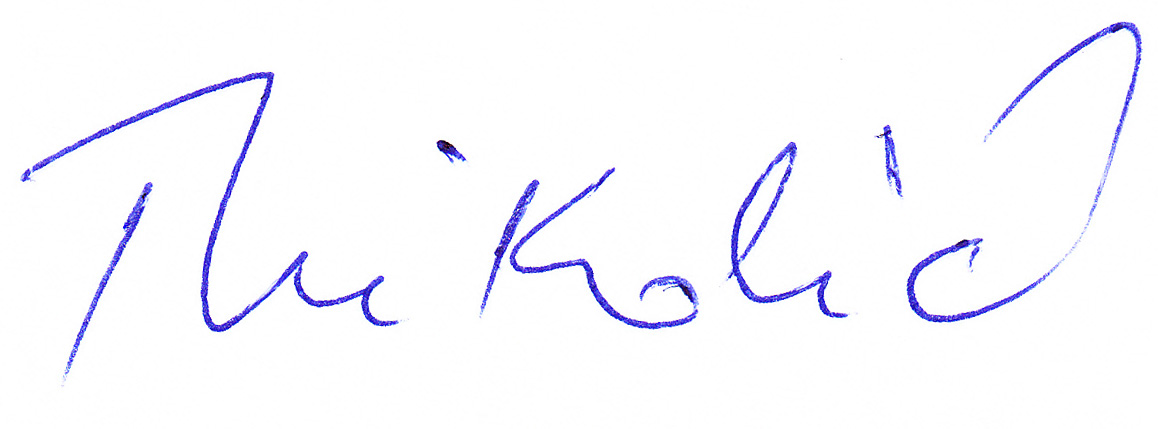 Nikolić